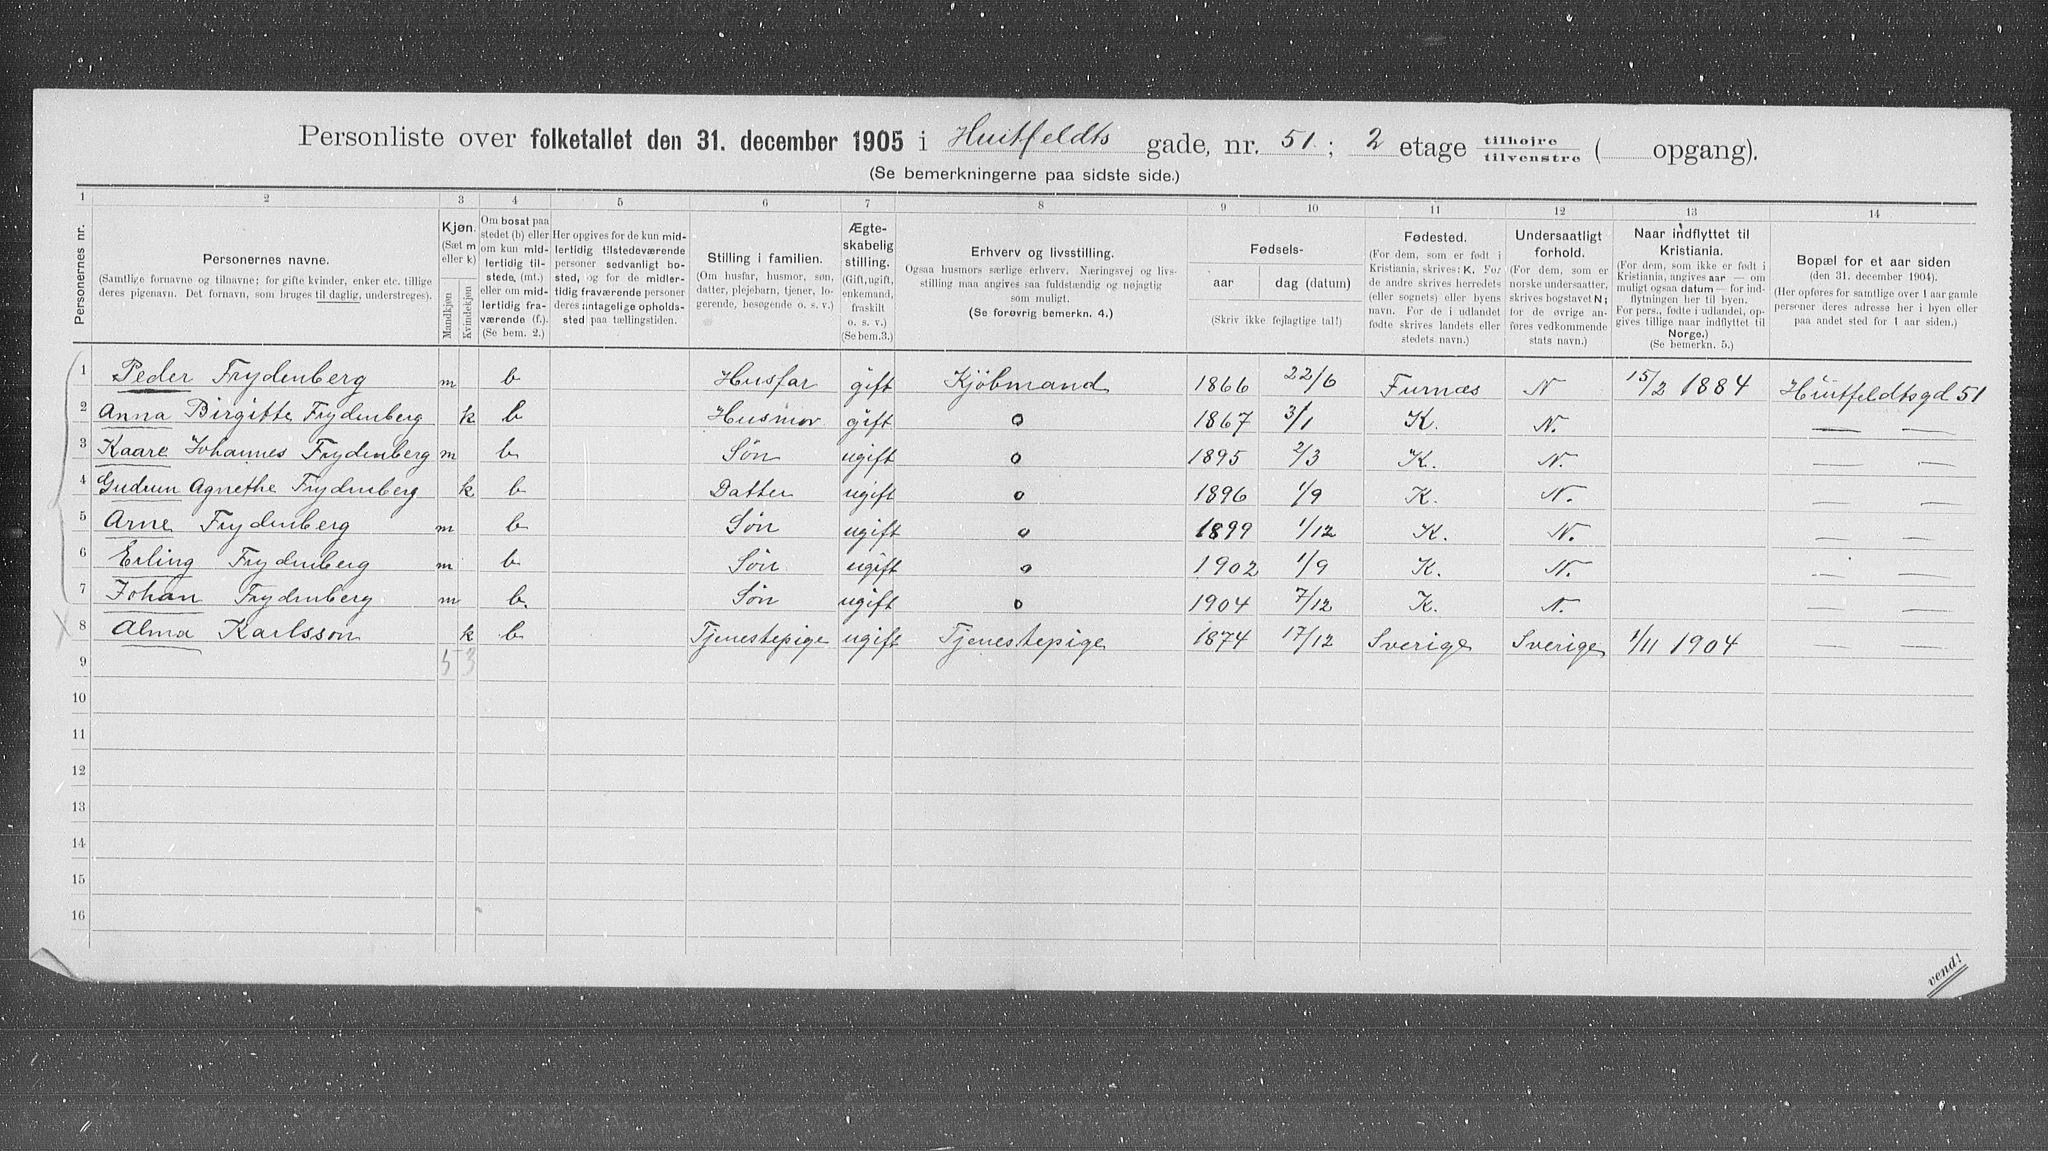 Personliste over folketallet den 31. december 1905 i Huitfeldts gade, nr. 51; 2 etage tilhøjre tilvenstre ( opgang).
(Se bemerkningerne paa sidste side.)
1 2 3 4 5 6 7 8 9 10 11 12 13 14
Personernes nr.
Personernes navne.
(Samtlige fornavne og tilnavne; for gifte kvinder, enker etc. tillige
deres pigenavn. Det fornavn, som bruges til daglig, understreges).
Kjøn.
(Sæt m
eller k)
Mandkjøn
Kvindekjøn
Om bosat paa
stedet (b) eller
om kun mid-
lertidig til-
stede, (mt.)
eller om mid-
lertidig fra-
værende (f.).
(Se bem. 2.)
Her opgives for de kun mid-
lertidig tilstedeværende
personer sedvanligt bo-
sted, og for de midler-
tidig fraværende personer
deres antagelige opholds-
sted paa tællingstiden.
Stilling i familien.
(Om husfar, husmor, søn,
datter, plejebarn, tjener, lo-
gerende, besøgende o. s. v.)
Ægte-
skabelig
stilling.
(Gift, ugift,
enkemand,
fraskilt
o. s. v.)
(Se bem.3.)
Erhverv og livsstilling.
Ogsaa husmors særlige erhverv. Næringsvej og livs-
stilling maa angives saa fuldstændig og nøjagtig
som muligt.
(Se forøvrig bemerkn. 4.)
Fødsels-
aar dag (datum)
(Skriv ikke fejlagtige tal!)
Fødested.
(For dem, som er født i
Kristiania, skrives: K. For
de andre skrives herredets
(eller sognets) eller byens
navn. For de i udlandet
fødte skrives landets eller
stedets navn.)
Undersaatligt
forhold.
(For dem, som er
norske undersaatter,
skrives bogstavet N;
for de øvrige an-
føres vedkommende
stats navn.)
Naar indflyttet til
Kristiania.
(For dem, som ikke er født i
Kristiania, angives aar – om
muligt ogsaa datum – for ind-
flytningen her til byen.
For pers., fødte i udlandet, op-
gives tillige naar indflyttet til
Norge.)
(Se bemerkn. 5.)
Bopæl for et aar siden
(den 31. december 1904).
(Her opføres for samtlige over 1 aar gamle
personer deres adresse her i byen eller
paa andet sted for 1 aar siden.)
1 Peder Frydenberg m b Husfar gift Kjöbmand 1866 22/6 Furnæs N 15/2 1884 Huitfeldtsgd 51
2 Anna Birgitte Frydenberg k b Husmor gift o 1867 3/1 K. N. — —
3 Kaare Johannes Frydenberg m b Søn ugift o 1895 2/3 K. N. — —
4 Gudrun Agnethe Frydenberg k b Datter ugift o 1896 1/9 K. N. — —
5 Arne Frydenberg m b Søn ugift o 1899 1/12 K. N. — —
6 Erling Frydenberg m b Søn ugift o 1902 1/9 K. N. — —
7 Johan Frydenberg m b. Søn ugift o 1904 7/12 K. N. — —
8 Alma Karlsson k b Tjenestepige ugift Tjenestepige 1874 17/12 Sverige Sverige 1/11 1904 — —
9 5 3
10
11
12
13
14
15
16
vend!